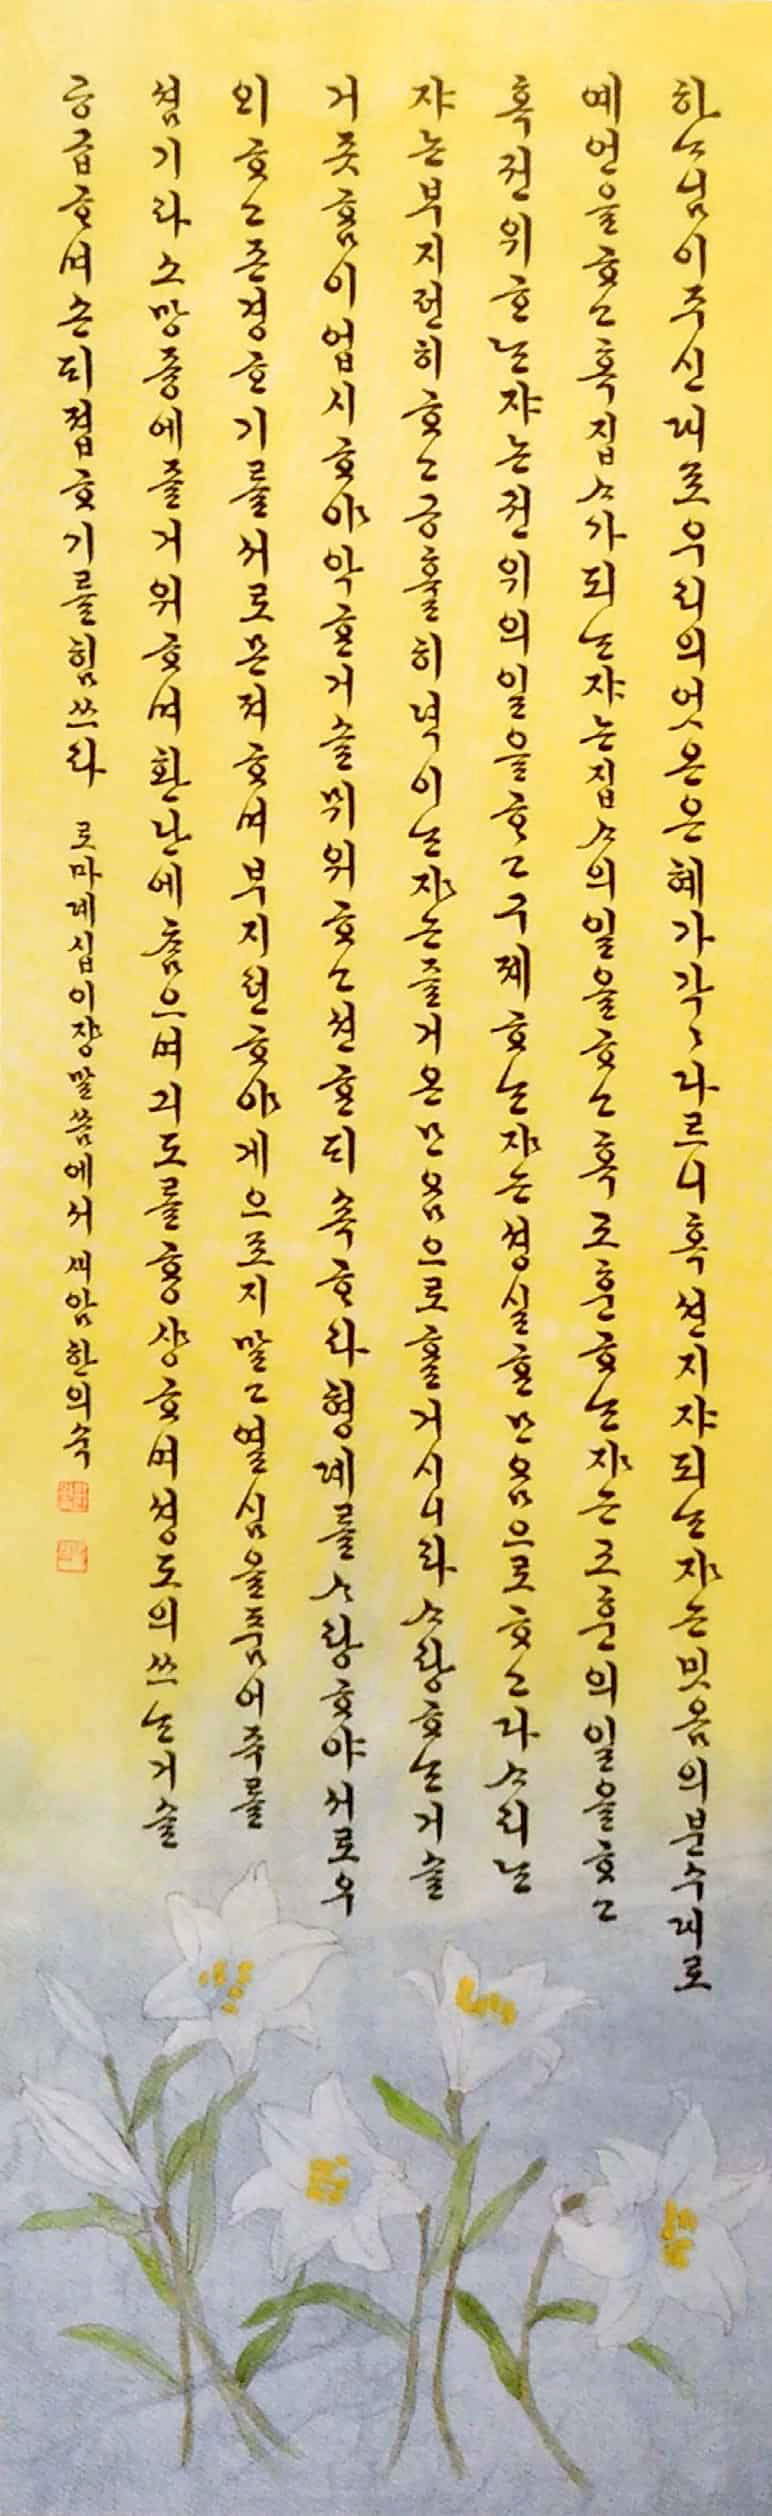 하ᄂᆞ님이주신대로우리의엇은은혜가각〻다르니혹션지쟈되ᄂᆞᆫ쟈ᄂᆞᆫ밋음의분수대로
예언을ᄒᆞ고혹집ᄉᆞ가되ᄂᆞᆫ쟈ᄂᆞᆫ집ᄉᆞ의일을ᄒᆞ고혹교훈ᄒᆞᄂᆞᆫ쟈ᄂᆞᆫ교훈의일을ᄒᆞ고
혹권위ᄒᆞᄂᆞᆫ쟈ᄂᆞᆫ권위의일을ᄒᆞ고구졔ᄒᆞᄂᆞᆫ쟈ᄂᆞᆫ셩실ᄒᆞᆫᄆᆞ음으로ᄒᆞ고다ᄉᆞ리ᄂᆞᆫ
쟈ᄂᆞᆫ부지런히ᄒᆞ고긍휼히녁이ᄂᆞᆫ쟈ᄂᆞᆫ즐거온ᄆᆞ음으로ᄒᆞᆯ거시니라ᄉᆞ랑ᄒᆞᄂᆞᆫ거슬
거즛ᄒᆞᆷ이업시ᄒᆞ야악ᄒᆞᆫ거슬뮈워ᄒᆞ고션ᄒᆞᆫ듸쇽ᄒᆞ라형뎨를ᄉᆞ랑ᄒᆞ야서로우
외ᄒᆞ고존경ᄒᆞ기를서로몬져ᄒᆞ며부지런ᄒᆞ야게으르지말고열심을품어쥬를
섬기라소망즁에즐거워ᄒᆞ며환난에ᄎᆞᆷ으며긔도를ᄒᆞᆼ샹ᄒᆞ며셩도의쓰ᄂᆞᆫ거슬
공급ᄒᆞ며손ᄃᆡ졉ᄒᆞ기를힘쓰라 로마뎨십이쟝말씀에서 암한의숙